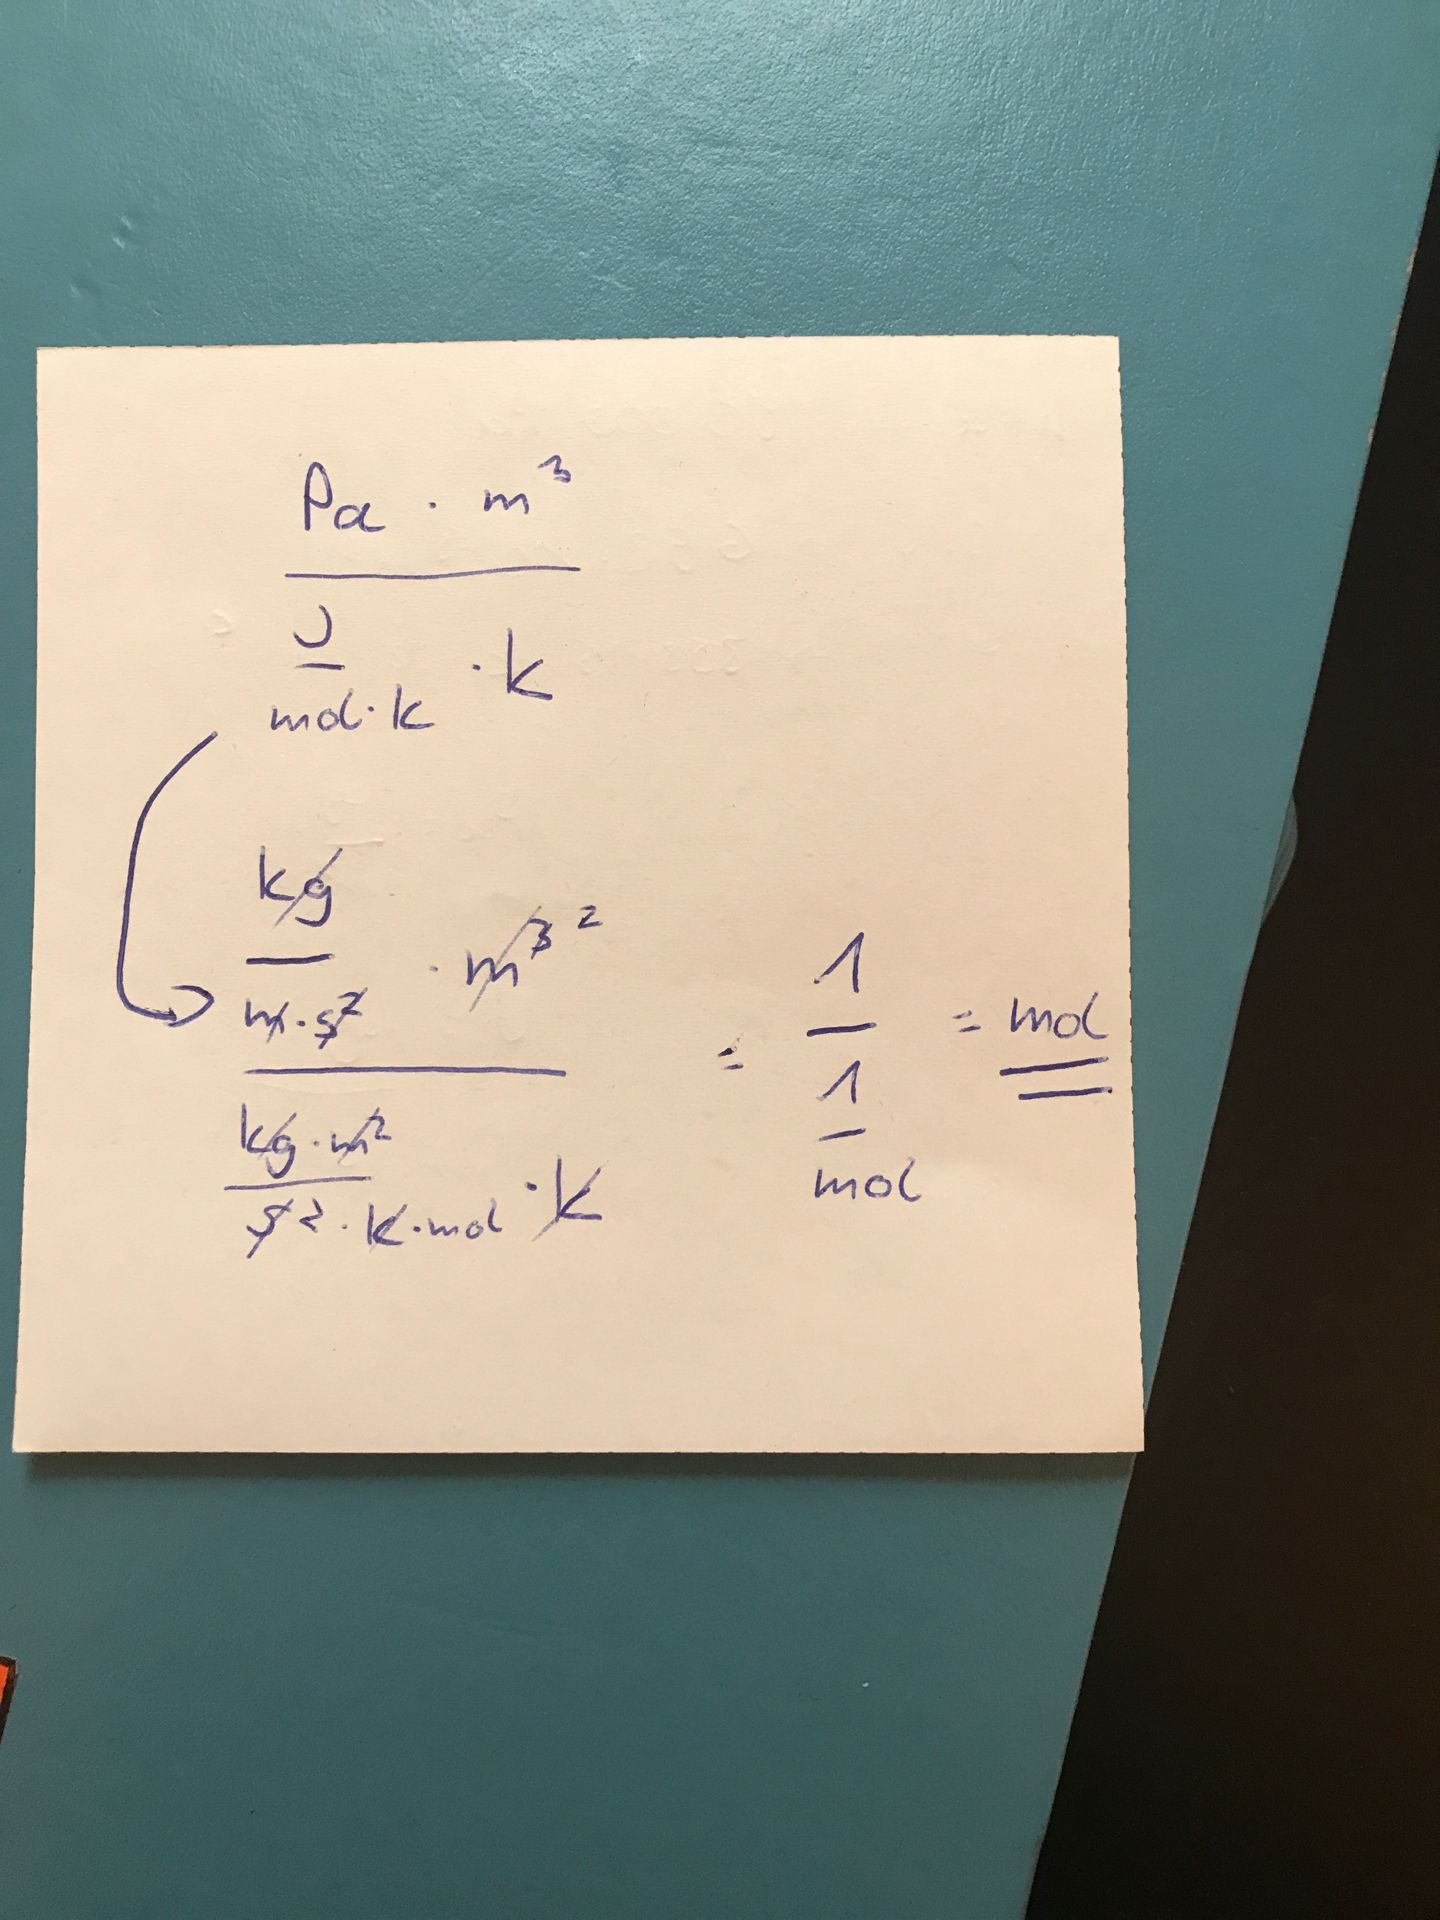 Pa · m³
J
mol·k · k
kg
m·s² · m³ ²
kg·m²
s²·k·mol · k
= 1
1
mol
= mol